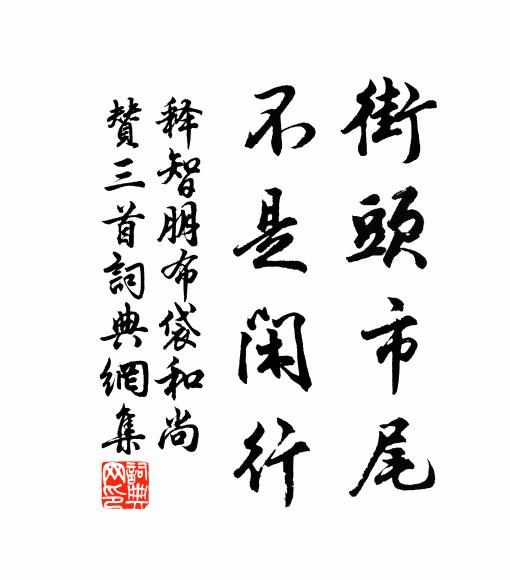 街頭市尾
不是閑行
释智朋布袋和尚
贊三首詞典網集
詞典网印